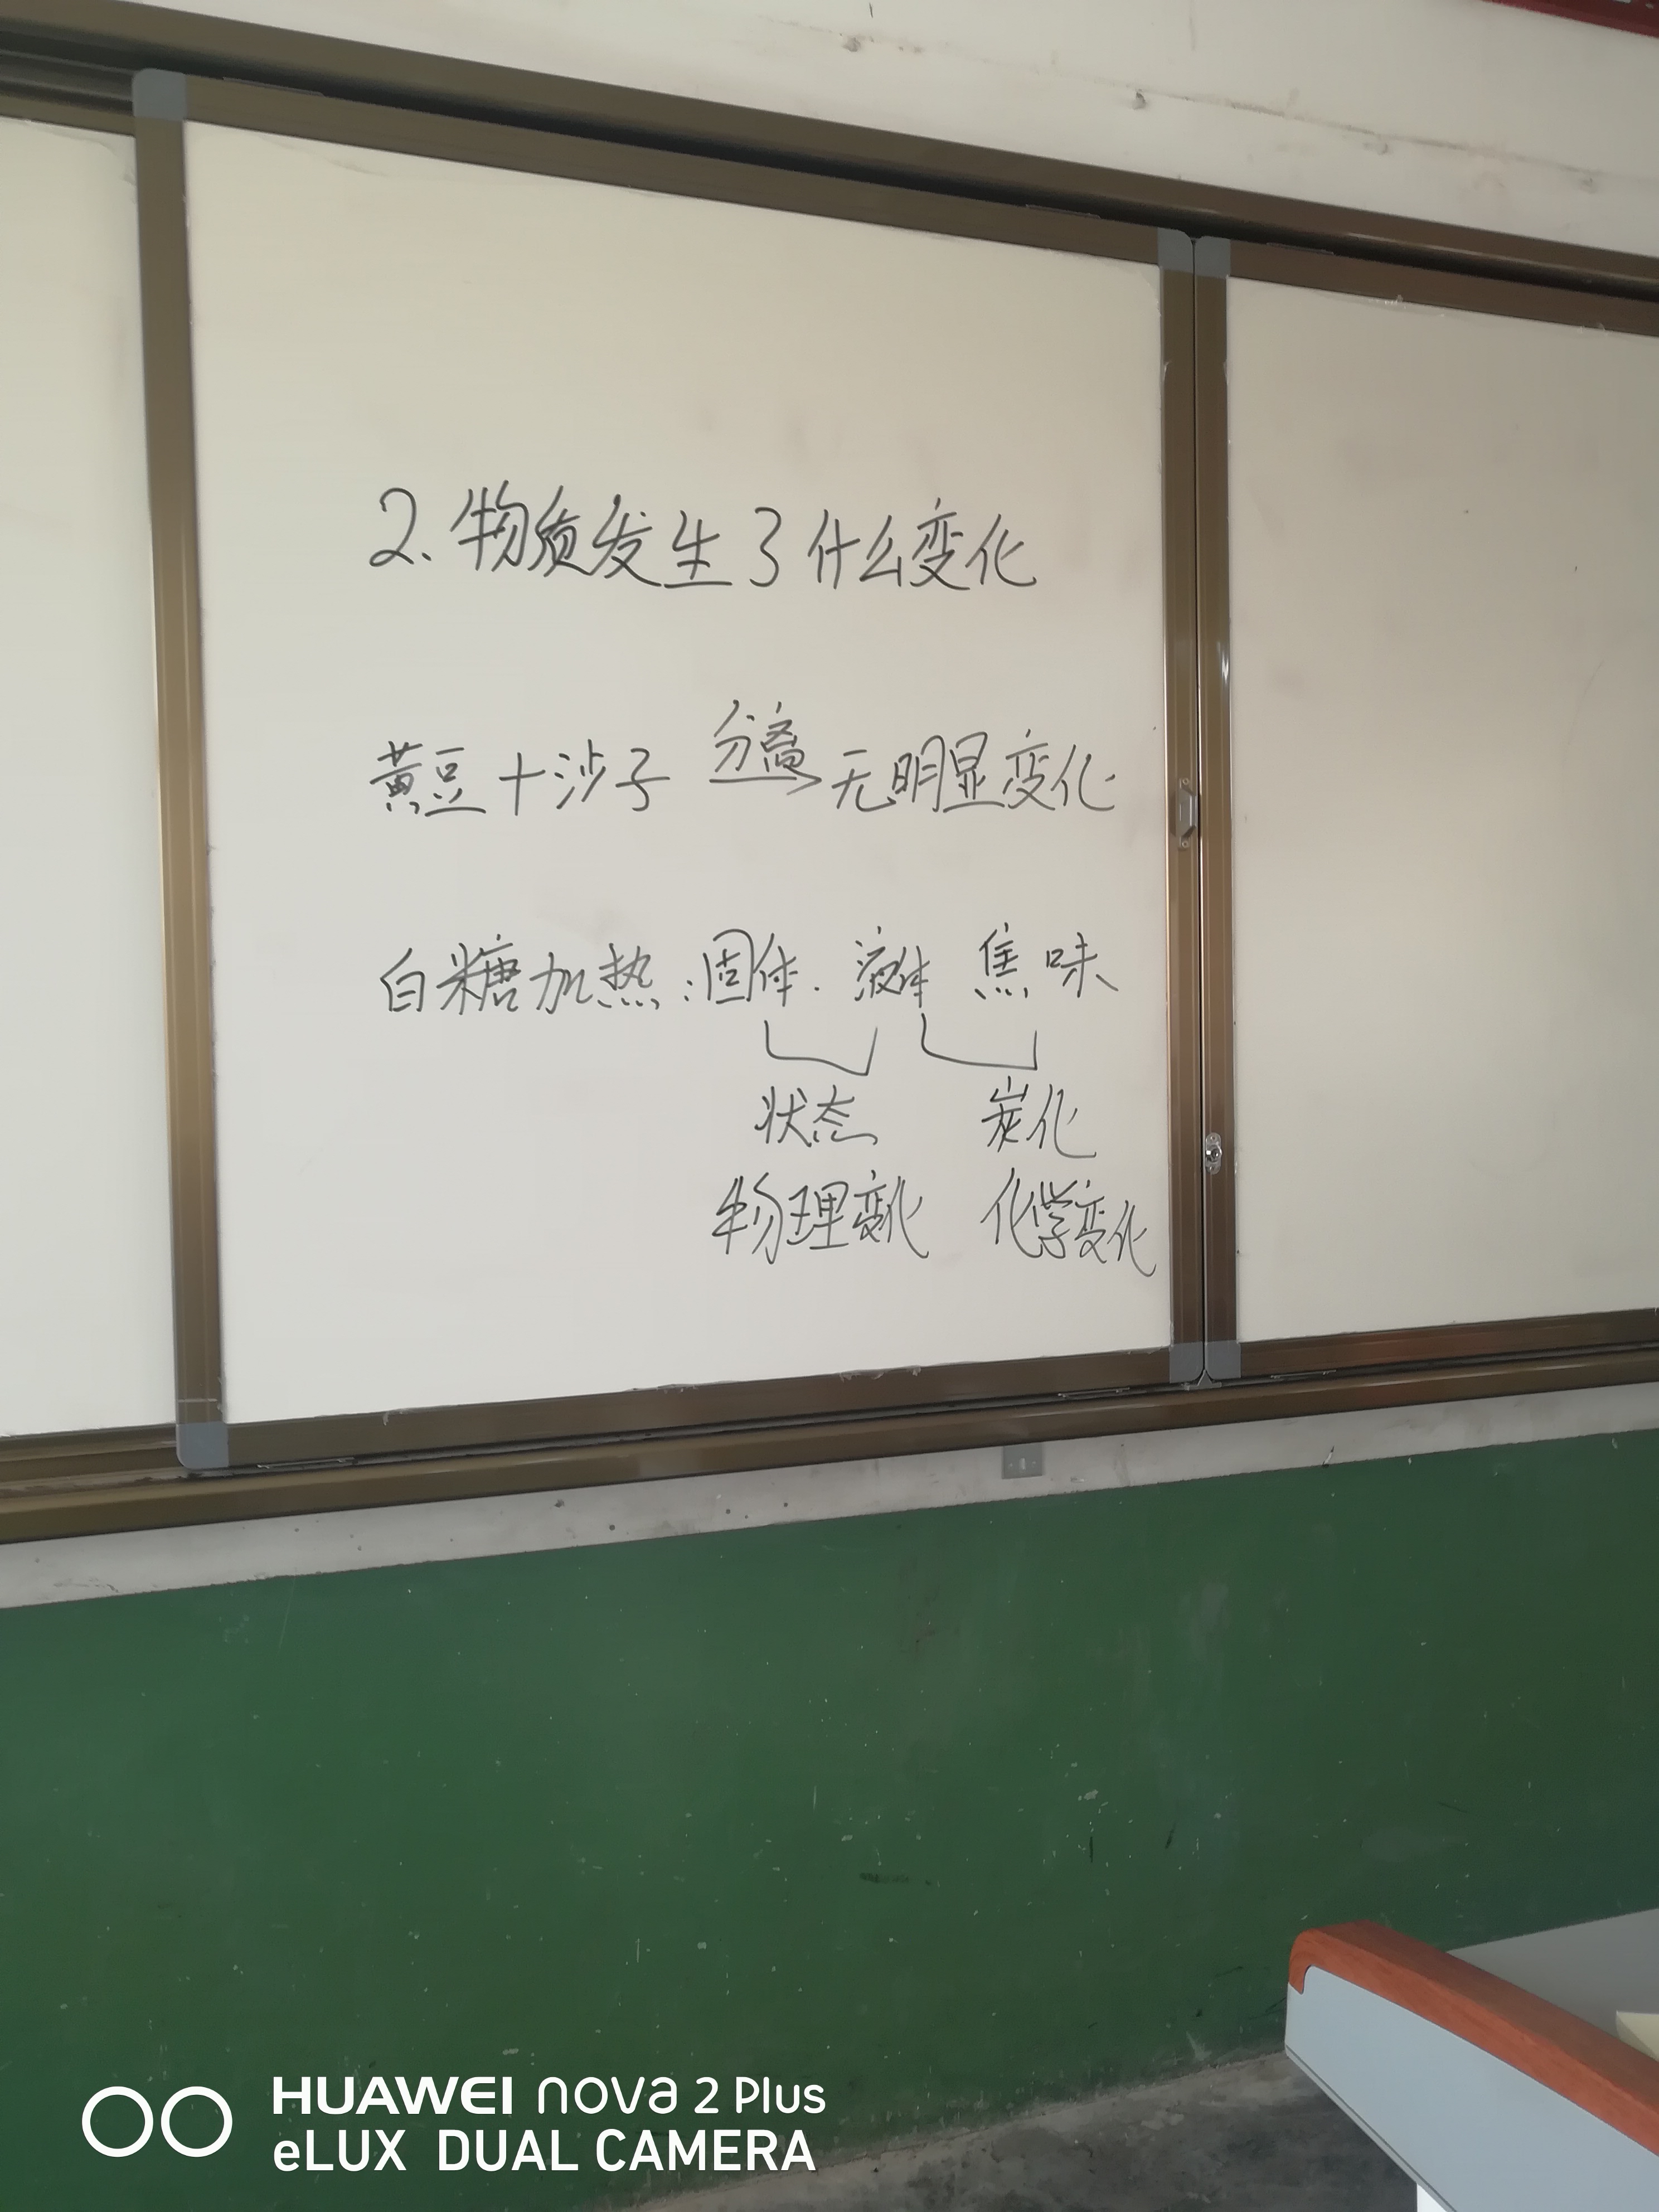 2.物质发生了什么变化
黄豆+沙子 分离→ 无明显变化
白糖加热:固体. 液体 焦味
状态 炭化
物理变化 化学变化
HUAWEI nova 2 Plus
eLUX DUAL CAMERA